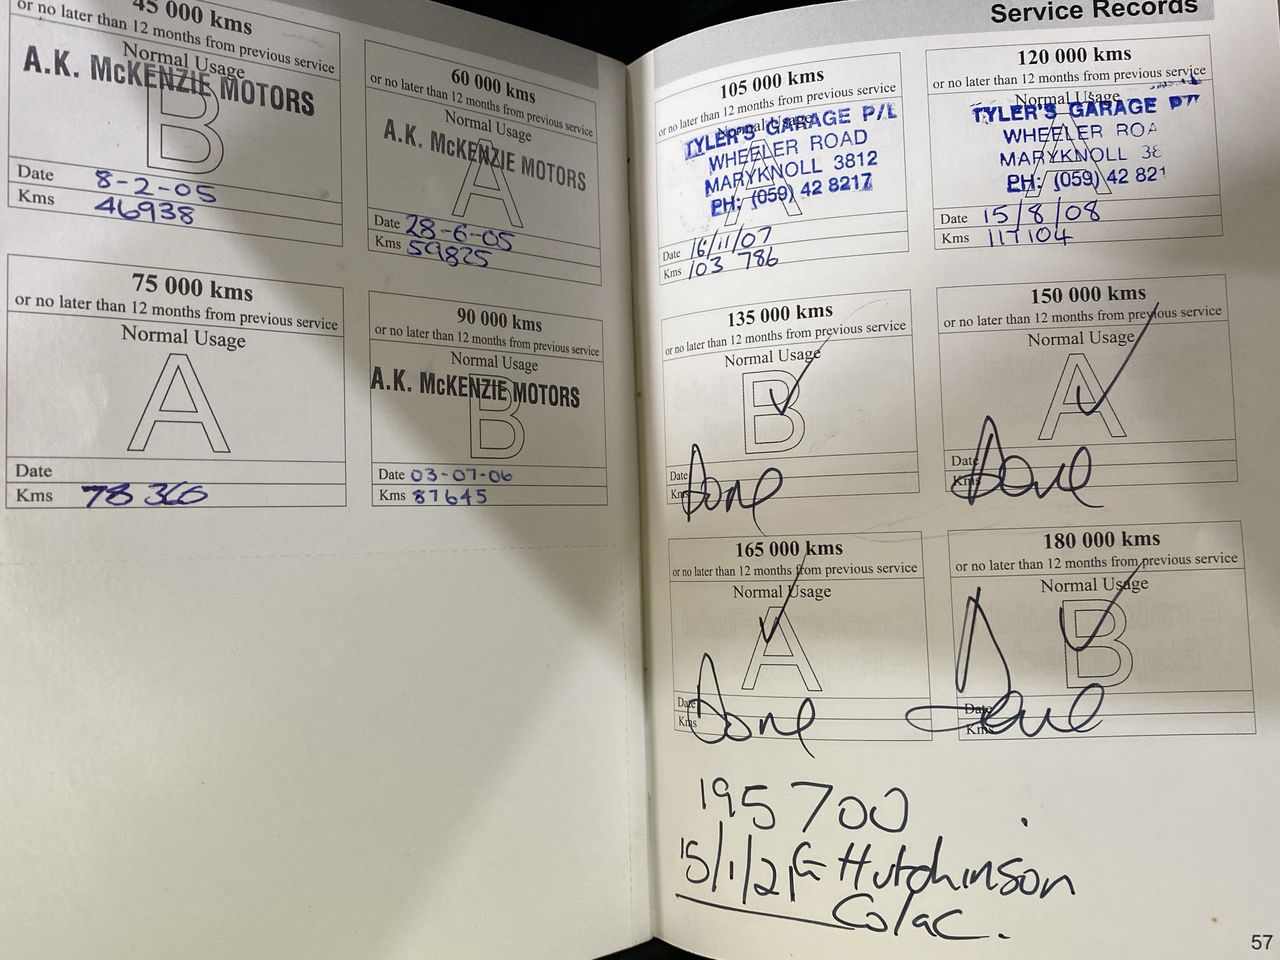 45 000 kms
or no later than 12 months from previous service
Normal Usage
A.K. McKENZIE MOTORS
B
Date 8-2-05
Kms 46938
60 000 kms
or no later than 12 months from previous service
Normal Usage
A.K. McKENZIE MOTORS
A
Date 28-6-05
Kms 59825
75 000 kms
or no later than 12 months from previous service
Normal Usage
A
Date
Kms 78360
90 000 kms
or no later than 12 months from previous service
Normal Usage
A.K. McKENZIE MOTORS
B
Date 03-07-06
Kms 87645
Service Records
105 000 kms
or no later than 12 months from previous service
Normal Usage
TYLER'S GARAGE P/L
WHEELER ROAD
MARYKNOLL 3812
PH: (059) 42 8217
A
Date 16/11/07
Kms 103 786
120 000 kms
or no later than 12 months from previous service
Normal Usage
TYLER'S GARAGE
WHEELER ROA
MARYKNOLL 38
PH: (059) 42 821
A
Date 15/8/08
Kms 117104
135 000 kms
or no later than 12 months from previous service
Normal Usage
B
Date
Kms
Done
150 000 kms
or no later than 12 months from previous service
Normal Usage
A
Date
Kms
Done
165 000 kms
or no later than 12 months from previous service
Normal Usage
A
Date
Kms
Done
180 000 kms
or no later than 12 months from previous service
Normal Usage
B
Date
Kms
Done
195 700
15/1/21 G Hutchinson
Colac.
57